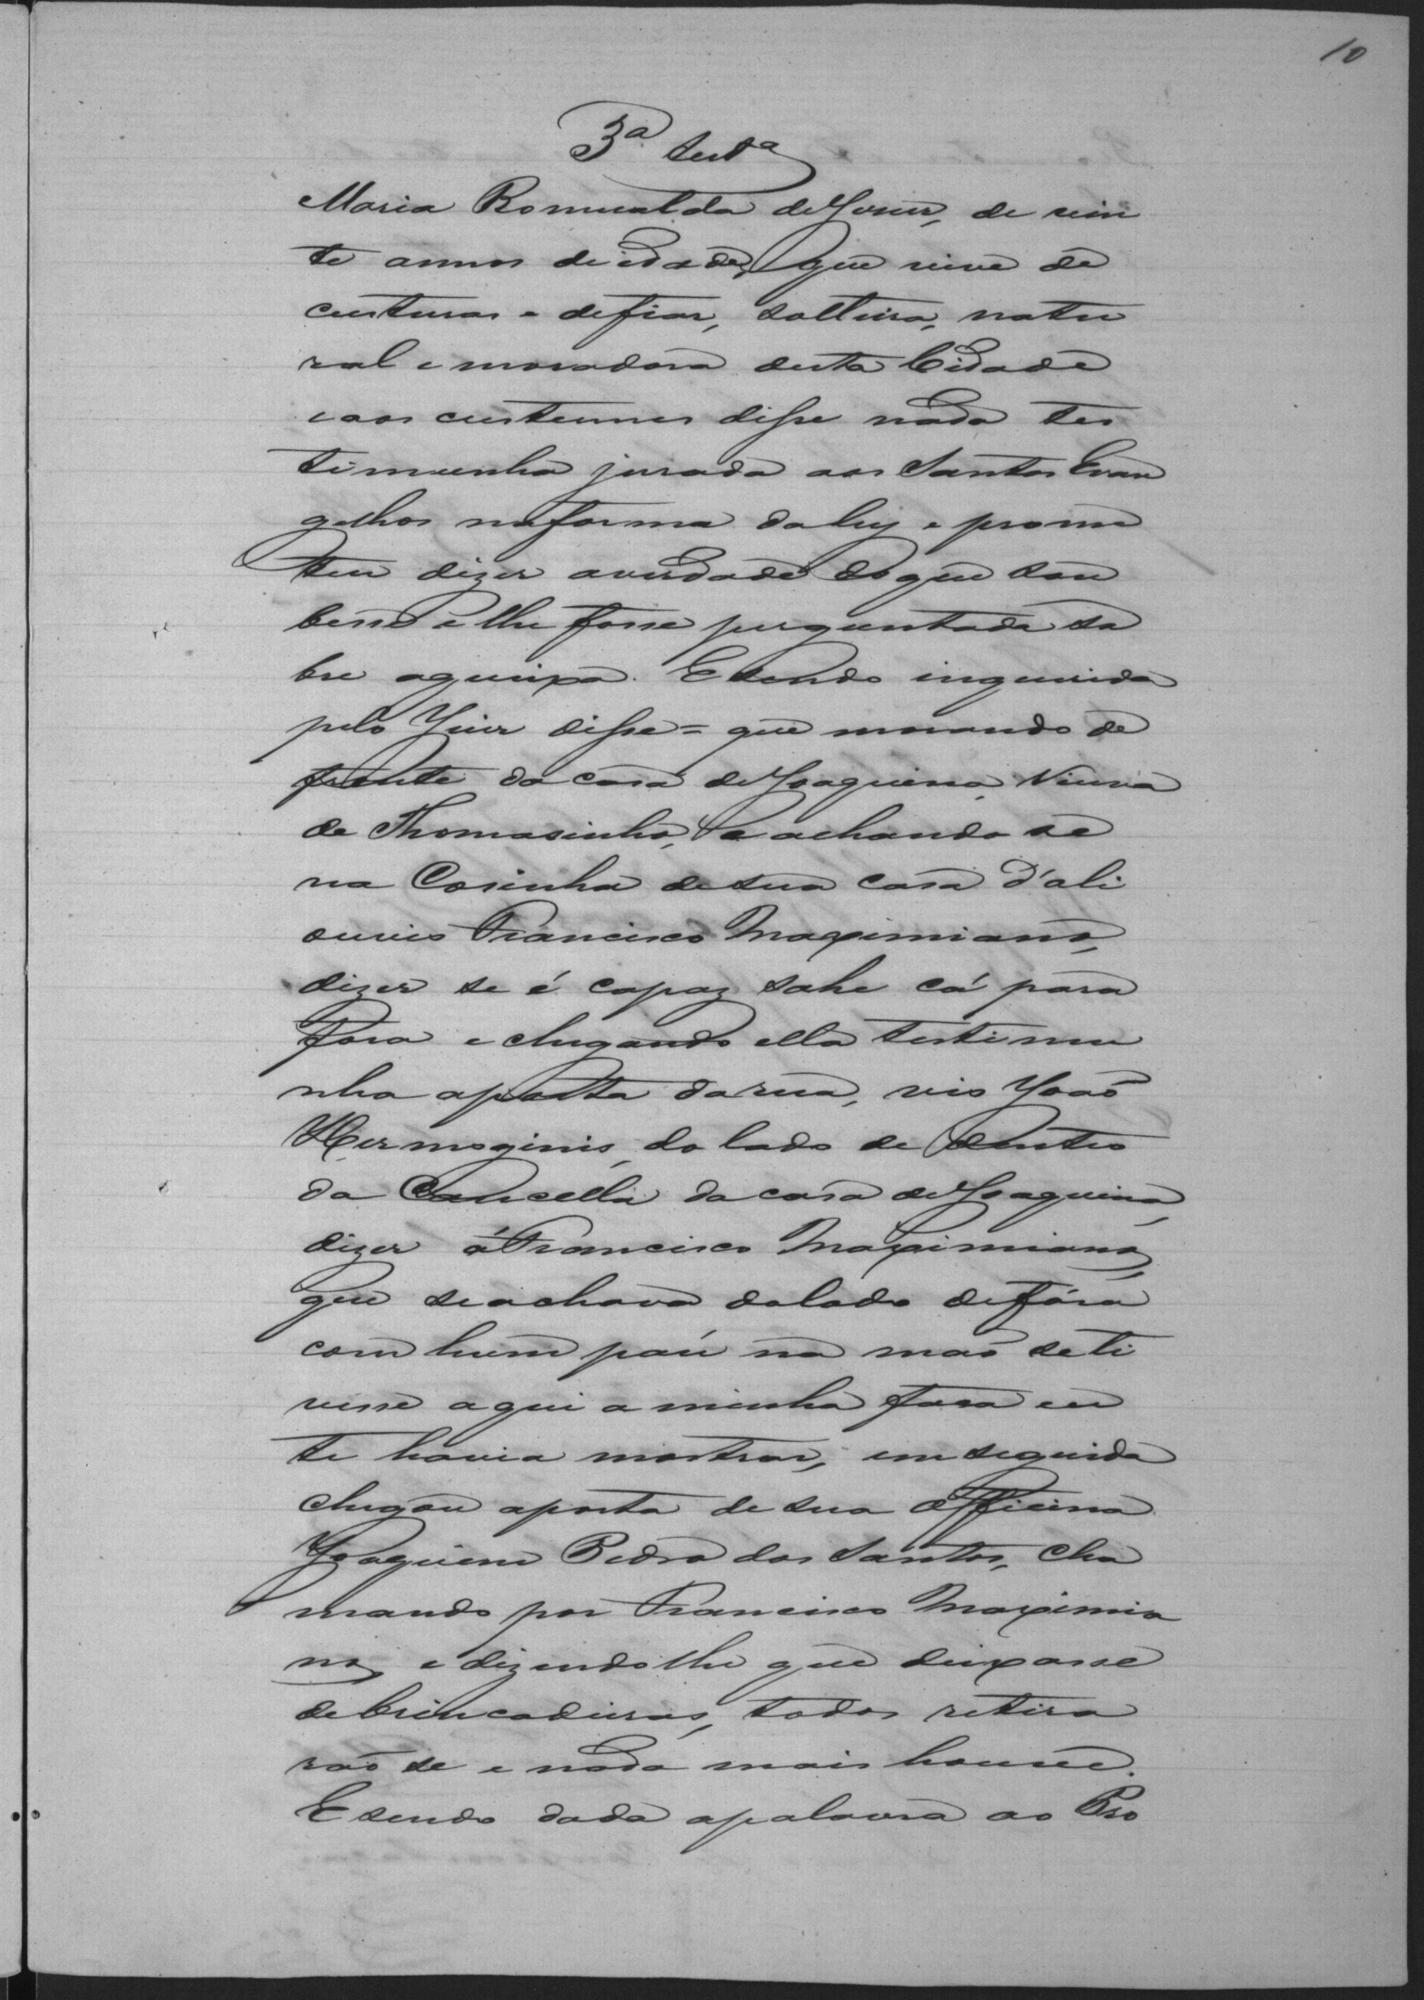 10
3ª testª
Maria Romualda de Jesus, de vin
te annos de idade, que vive de
custuras e defiar, solteira, natu
ral e moradora desta Cidade
eaos custumes disse nada tes
timunha jurada aos Santos Evan
gelhos naforma daley e prome
teu dizer averdade doque sou
besse e lhe fosse perguntada so
bre aqueixa. E sendo inquirida
pelo Juis disse = que morando de
frente da casa de Joaquina, Viuva
de Thomasinho, e achando se
na Cosinha de sua casa d'ali
ouvio Francisco Maximiano,
dizer se é capaz sahe cá para
fora e chegando ella testimu
nha aporta darua, vio João
Hermoginis, do lado de dentro
da Cancella da casa de Joaquina,
dizer á Francisco Maximiano,
que seachava dolado defóra
com hum paú na mão seti
vesse aqui a minha faca eu
te havia mostrar, em seguida
chegou aporta de sua officina
Joaquim Pedro dos Santos, cha
mando por Francisco Maximia
no, e dizendolhe que deixasse
debrincadeiras, todos retira
rão se e nada mais houve.
E sendo dada apalavra ao Pro